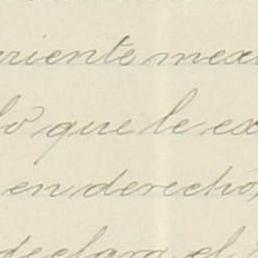 riente mexi
lo que le ex
en derecho,
declara el